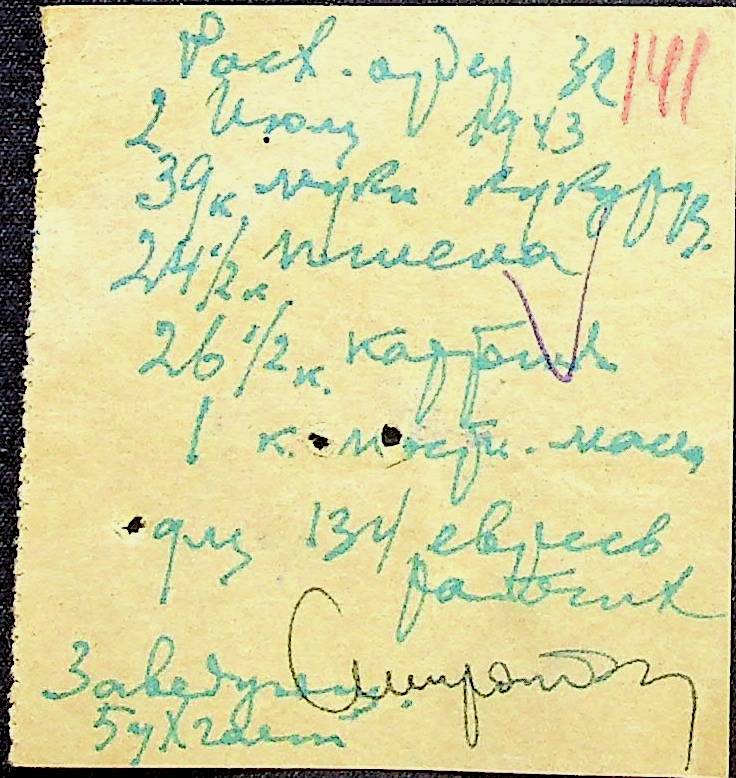 Расх. ордер 32 141
2 Июля 1943
39 к муки кукуруз.
24 1/2 к. пшена
26 1/2 к. картошк
1 к. масл
для 134 евреев
рабочих
Заведующий
Бухгалт